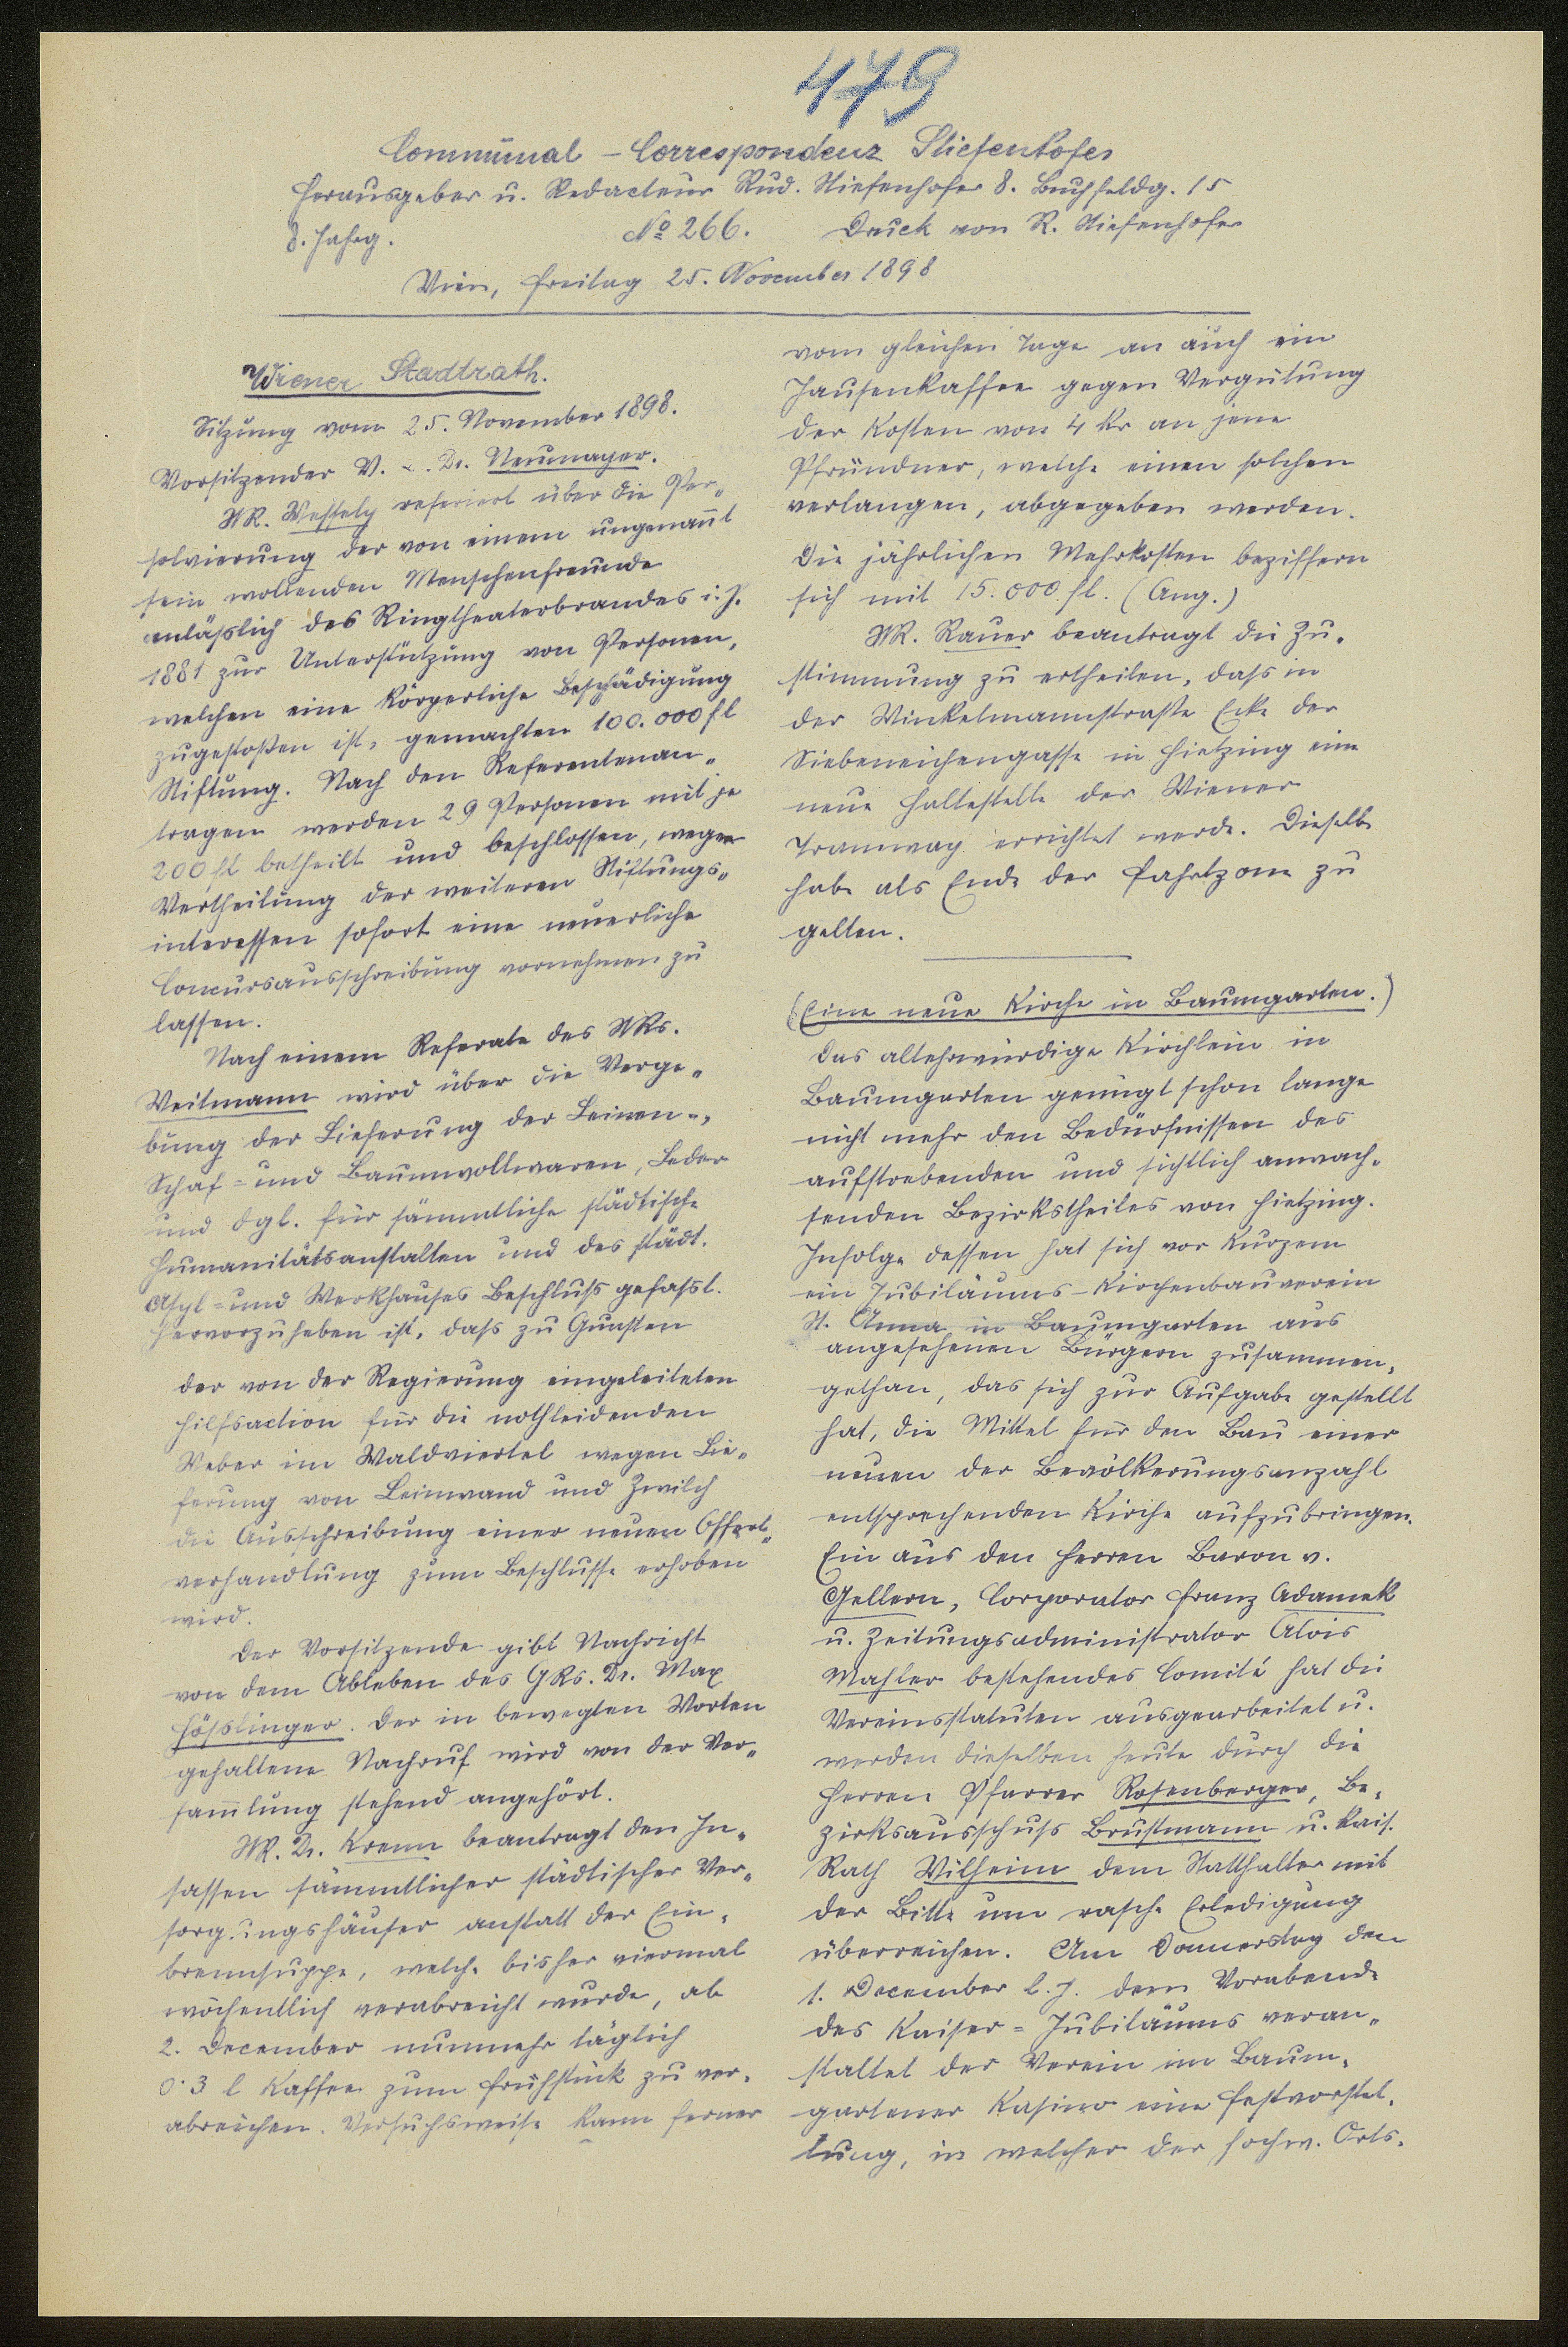 479
Communal-Correspondenz Stiefenhofer
Herausgeber u. Redacteur Rud. Stiefenhofer 8. Buchfeldg. 15
8. Jahrg. No 266. Druck von R. Stiefenhofer
Wien, Freitag 25. November 1898
Wiener Stadtrath.
Sitzung vom 25. November 1898.
Vorsitzender V. B. Dr. Neumayer.
StR. Wessely referiert über die Per„
solvierung der von einem ungenannt
sein wollenden Menschenfreunde
anläßlich des Ringtheaterbrandes i. J.
1881 zur Unterstützung von Personen,
welchen eine körperliche Beschädigung
zugestoßen ist, gemachten 100.000 fl
Stiftung. Nach den Referentenan„
tragen werden 29 Personen mit je
200 fl betheilt und beschlossen, wegen
Vertheilung der weiteren Stiftungs„
interessen sofort eine neuerliche
Concursausschreibung vornehmen zu
lassen.
Nach einem Referate des StRs.
Weitmann wird über die Verge„
bung der Lieferung der Leinen-,
Schaf- und Baumwollwaren, Leder
und dgl. für sämmtliche städtische
Humanitätsanstalten und des städt.
Asyl- und Werkhauses Beschluß gefasst.
Hervorzuheben ist, dass zu Gunsten
der von der Regierung eingeleiteten
Hilfsaction für die nothleidenden
Weber im Waldviertel wegen Lie„
ferung von Leinwand und Zwilch
die Ausschreibung einer neuen Offert„
verhandlung zum Beschlusse erhoben
wird.
Der Vorsitzende gibt Nachricht
von dem Ableben des GRs. Dr. Max
Hösslinger. Der in bewegten Worten
gehaltene Nachruf wird von der Ver„
sam̄lung stehend angehört.
StR. Dr. Krenn beantragt den In„
sassen sämmtlicher städtischer Ver„
sorgungshäuser anstatt der Ein„
brennsuppe, welche bisher viermal
wöchentlich verabreicht wurde, ab
2. December nunmehr täglich
0·3 l Kaffee zum Frühstück zu ver„
abreichen. Versuchsweise kann ferner
vom gleichen Tage an auch ein
Jausenkaffee gegen Vergütung
der Kosten von 4 Kr an jene
Pfründner, welche einen solchen
verlangen, abgegeben werden.
Die jährlichen Mehrkosten beziffern
sich mit 15.000 fl. (Ang.)
StR. Rauer beantragt die Zu„
stimmung zu ertheilen, dass in
der Winkelmannstraße Ecke der
Siebeneichengasse in Hietzing eine
neue Haltestelle der Wiener
Tramway errichtet werde. Dieselbe
habe als Ende der Fahrtzone zu
gelten.
(Eine neue Kirche in Baumgarten.)
Das altehrwürdige Kirchlein in
Baumgarten genügt schon lange
nicht mehr den Bedürfnissen des
aufstrebenden und sichtlich anwach„
senden Bezirkstheiles von Hietzing.
Infolge dessen hat sich vor Kurzem
ein Jubiläums-Kirchenbauverein
St. Anna in Baumgarten aus
angesehenen Bürgern zusammen„
gethan, das sich zur Aufgabe gestellt
hat, die Mittel für den Bau einer
neuen der Bevölkerungsanzahl
entsprechenden Kirche aufzubringen.
Ein aus den Herren Baron v.
Gellern, Corporator Franz Adamek
u. Zeitungsadministrator Alois
Mahler bestehendes Comité hat die
Vereinsstatuten ausgearbeitet u.
werden dieselben heute durch die
Herren Pfarrer Rosenberger, Be„
zirksausschuß Brustmann u. kais.
Rath Wilheim dem Statthalter mit
der Bitte um rasche Erledigung
überreichen. Am Donnerstag den
1. December l. J. dem Vorabende
des Kaiser-Jubiläums veran„
staltet der Verein im Baum„
gartener Kasino eine Festvorstel„
lung, in welcher der hochw. Orts„